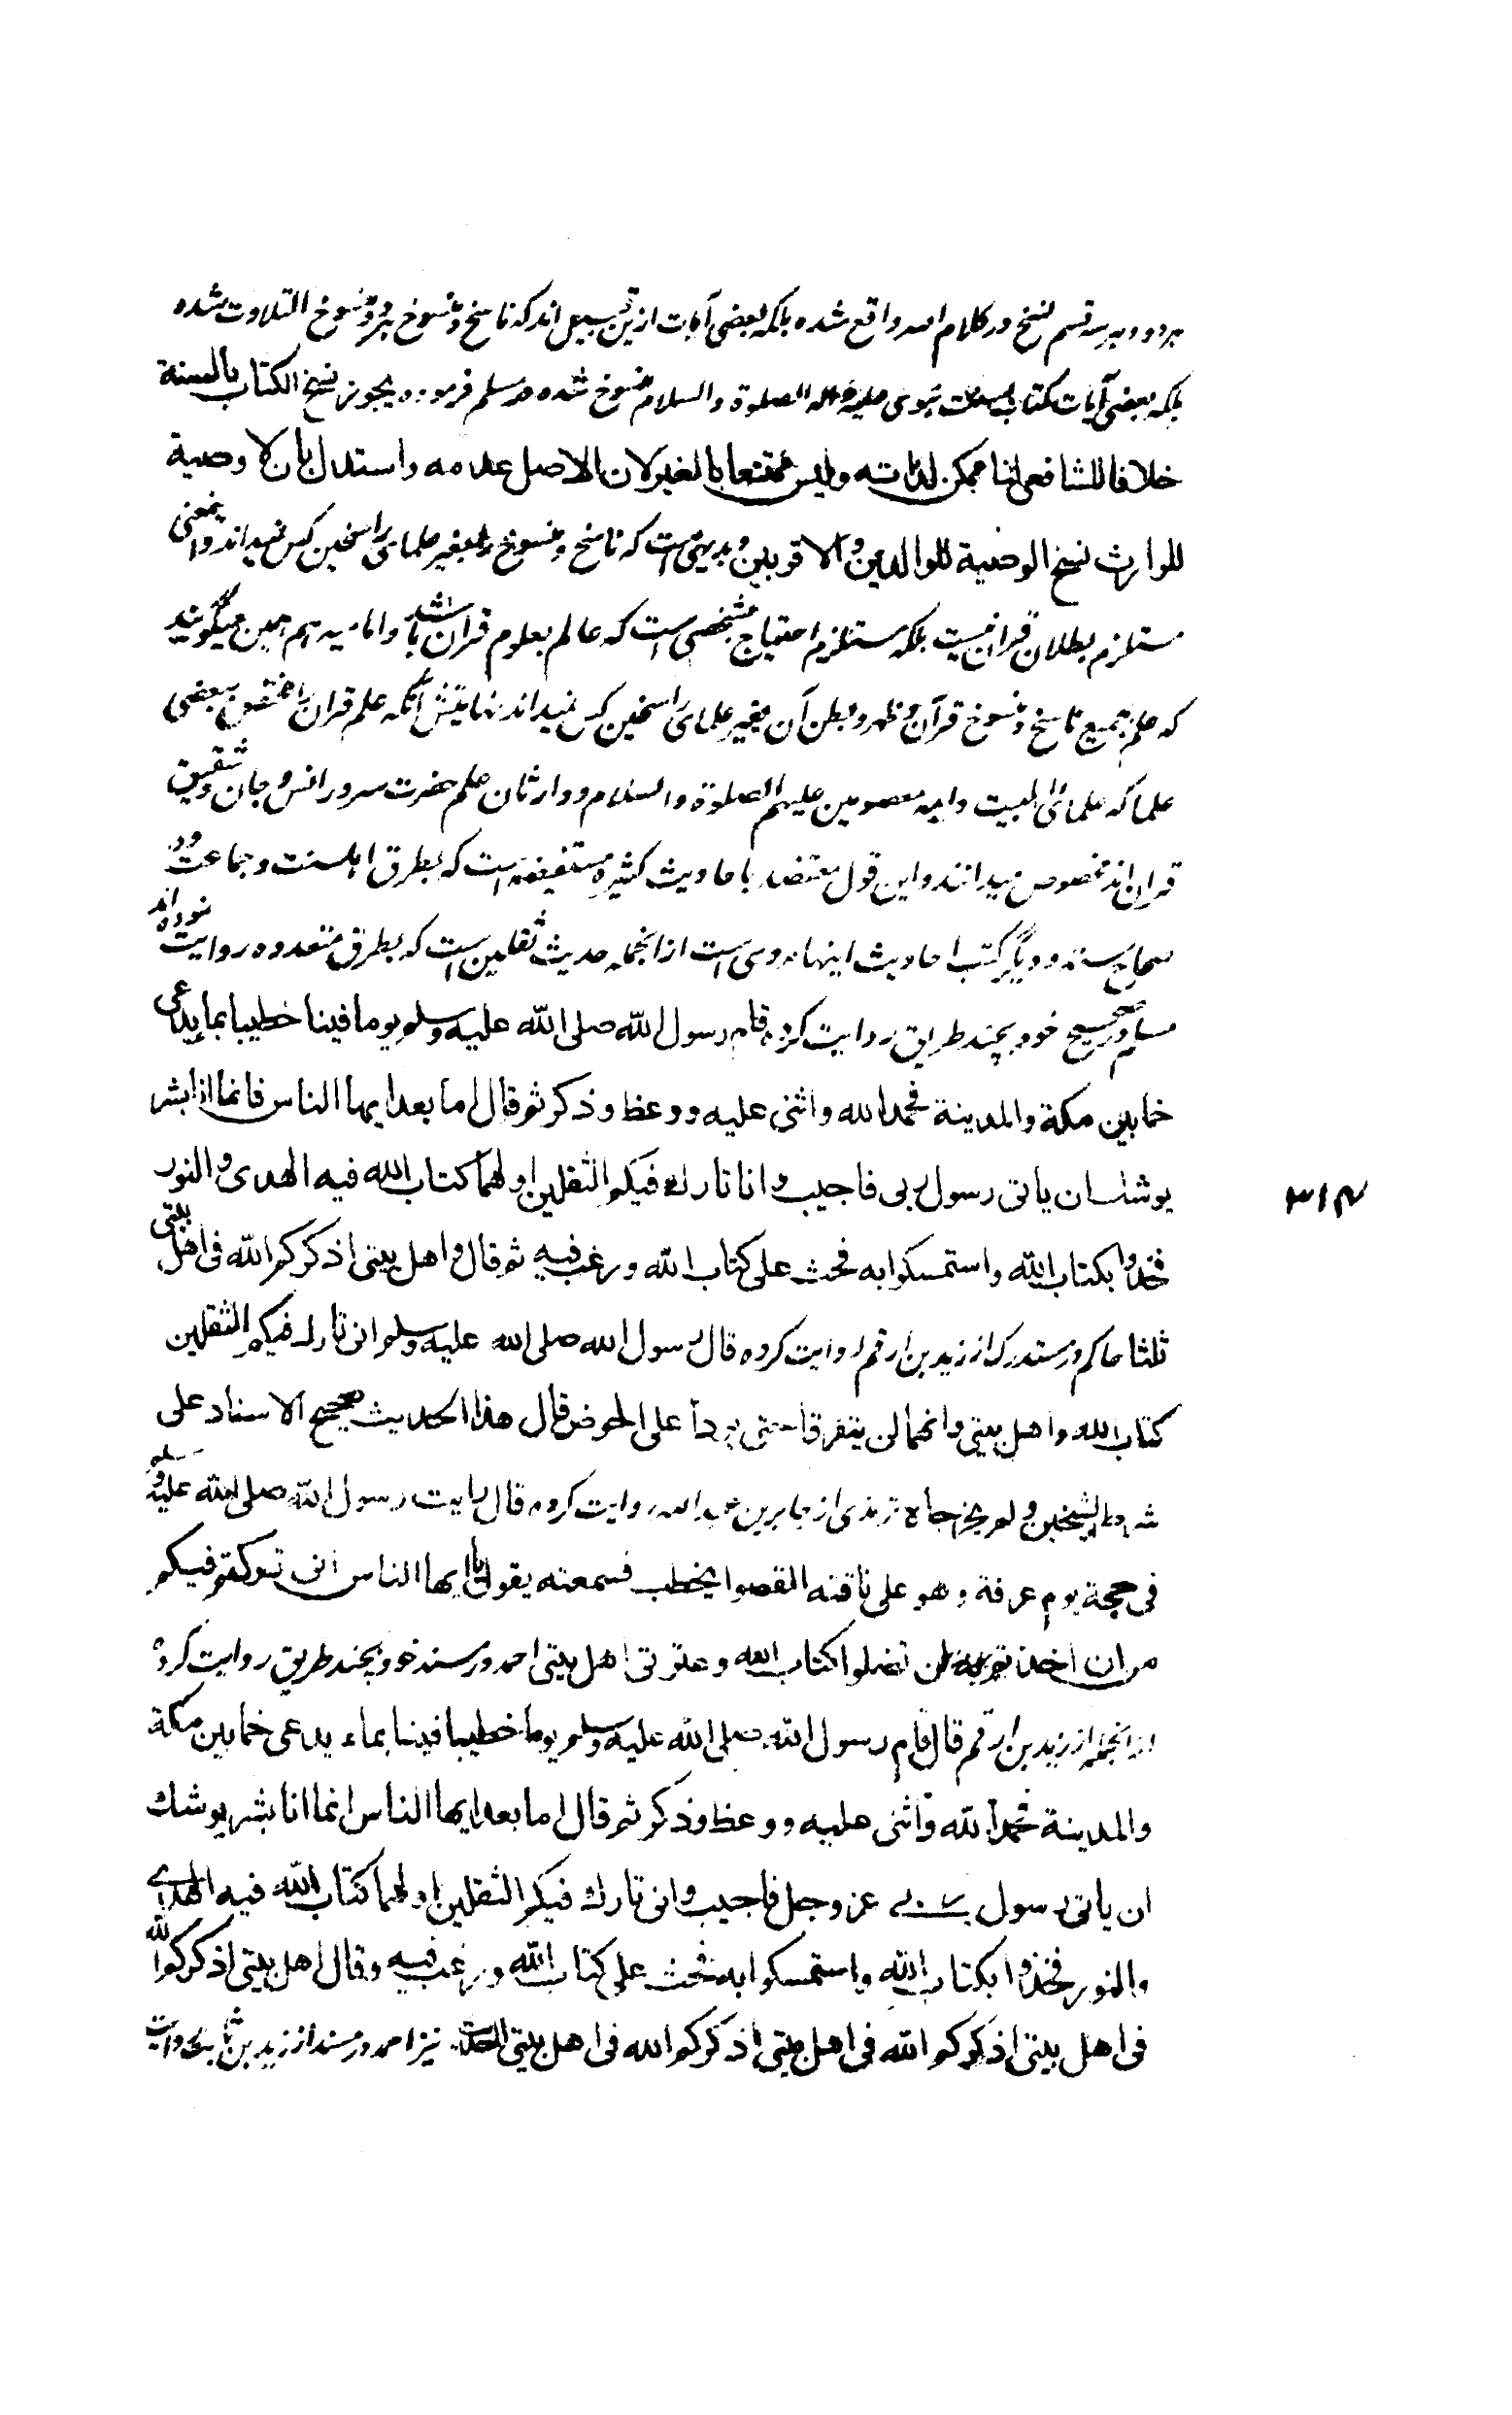 هر دو و هر سه قسم نسخ در کلام الله واقع شده بلکه بعضی آیات ازین قبیل اند که ناسخ و منسوخ هر دو منسوخ التلاوت شده
بلکه بعضی آیات کتاب بسنت نبوی علیه وآله الصلوة والسلام منسوخ شده در سلم فرموده یجوز نسخ الکتاب بالسنة
خلافا للشافعی لنا ممکن لذاته ولیس ممتنعا بالغیر لان الاصل عدمه واستدل بان لا وصیة
للوارث نسخ الوصیة للوالدین والاقربین و بدیهی است که ناسخ و منسوخ را بغیر علمای راسخین کس نمیداند و اینمعنی
مستلزم بطلان قران نیست بلکه مستلزم احتیاج بشخصی است که عالم بعلوم قران باشد و امامیه هم همین میگویند
که علم جمیع ناسخ و منسوخ قرآن و ظهر و بطن آن بغیر علمای راسخین کس نمیداند نهایتش آنکه علم قران را مختص ببعضی
علما که علمای اهلبیت و ایمه معصومین علیهم الصلوة والسلام و وارثان علم حضرت سرور انس و جان و شقیق
قران اند مخصوص میدانند و این قول معتضد باحادیث کثیره مستفیضه است که بطرق اهلسنت و جماعت در
صحاح سته و دیگر کتب احادیث اینها مروی است ازانجمله حدیث ثقلین است که بطرق متعدده روایت نموده اند
مسلم در صحیح خود بچند طریق روایت کرده قام رسول الله صلی الله علیه وسلم یوما فینا خطیبا بما یدعی
خما بین مکة والمدینة فحمد الله واثنی علیه ووعظ وذکر ثم قال اما بعد ایها الناس فانما انا بشر
یوشك ان یاتی رسول ربی فاجیب وانا تارك فیکم الثقلین اولهما کتاب الله فیه الهدی والنور
فخذوا بکتاب الله واستمسکوا به فحث علی کتاب الله ورغب فیه ثم قال واهل بیتی اذکرکم الله فی اهل بیتی
ثلثا حاکم در مستدرک از زید بن ارقم روایت کرده قال رسول الله صلی الله علیه وسلم انی تارك فیکم الثقلین
کتاب الله واهل بیتی وانهما لن یتفرقا حتی یردا علی الحوض قال هذا الحدیث صحیح الاسناد علی
شرط الشیخین ولم یخرجاه ترمذی از جابر بن عبد الله روایت کرده قال رایت رسول الله صلی الله علیه وسلم
فی حجة یوم عرفة وهو علی ناقته القصوا یخطب فسمعته یقول یا ایها الناس انی ترکت فیکم
من ان اخذتم به لن تضلوا کتاب الله وعترتی اهل بیتی احمد در مسند خود بچند طریق روایت کرده
ازانجمله از زید بن ارقم قال قام رسول الله صلی الله علیه وسلم یوما خطیبا فینا بماء یدعی خما بین مکة
والمدینة فحمد الله واثنی علیه ووعظ وذکر ثم قال اما بعد ایها الناس انما انا بشر یوشك
ان یاتی رسول ربی عز وجل فاجیب وانی تارك فیکم الثقلین اولهما کتاب الله فیه الهدی
والنور فخذوا بکتاب الله واستمسکوا به فحث علی کتاب الله ورغب فیه وقال اهل بیتی اذکرکم الله
فی اهل بیتی اذکرکم الله فی اهل بیتی اذکرکم الله فی اهل بیتی الحدیث نیز احمد در مسند از زید بن ثابت روایت
۳۱۴